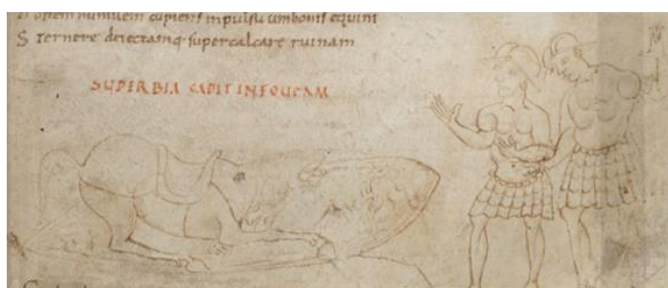 hostem humilem cupiens impulsu umbonis equini
Sternere deiectamq supercalcare ruinam
SUPERBIA CADIT IN FOUEAM